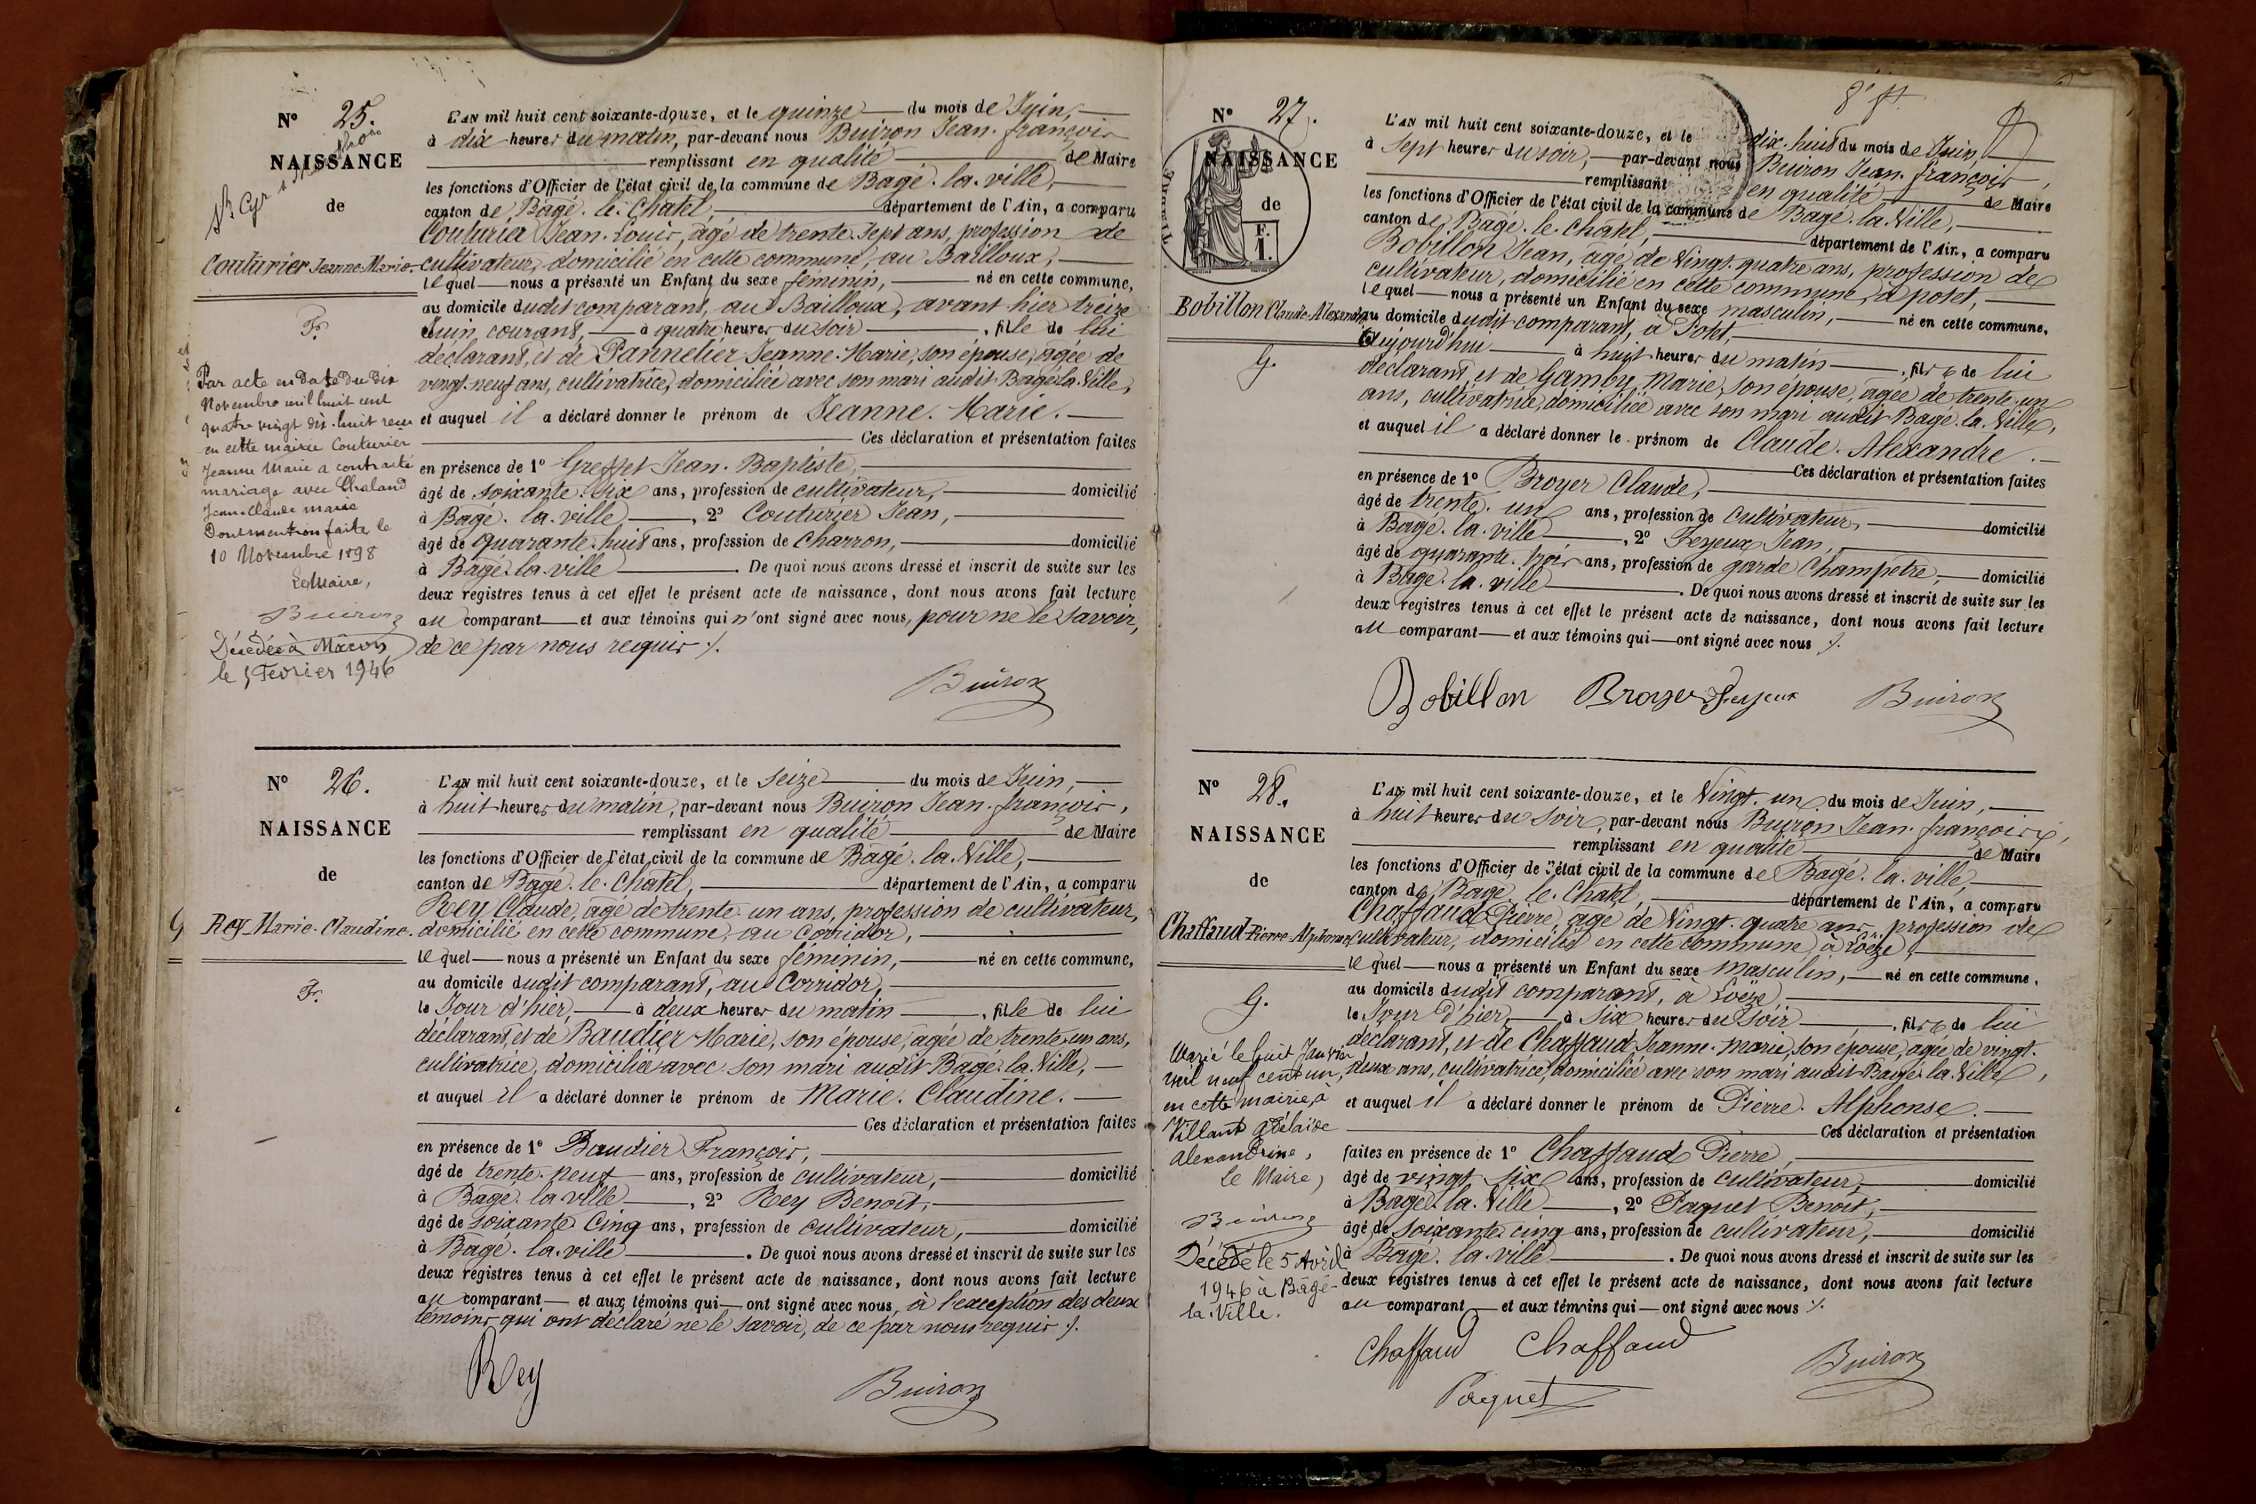 N° 25.
NAISSANCE
de
Couturier Jeanne-Marie.
F.
Par acte en date du dix
Novembre mil huit cent
quatre vingt dix-huit reçu
en cette mairie Couturier
Jeanne Marie a contracté
mariage avec Chaland
Jean-Claude Marie
Dont mention faite le
10 Novembre 1898
Le Maire,
Buiron
Décédée à Mâcon
le 5 Février 1946
L'AN mil huit cent soixante-douze, et le quinze du mois de Juin,
à dix heures du matin, par-devant nous Buiron Jean-françois
remplissant en qualité de Maire
les fonctions d'Officier de l'état civil de la commune de Bagé-la-ville,
canton de Bagé-le-Chatel, département de l'Ain, a comparu
Couturier Jean-Louis, âgé de trente-sept ans, profession de
cultivateur, domicilié en cette commune, au Bailloux,
lequel nous a présenté un Enfant du sexe féminin, né en cette commune,
au domicile dudit comparant, au Bailloux, avant hier treize
Juin courant, à quatre heures du soir, fille de lui
déclarant, et de Pannetier Jeanne-Marie, son épouse, âgée de
vingt-neuf ans, cultivatrice, domiciliée avec son mari audit Bagé-la-Ville,
et auquel il a déclaré donner le prénom de Jeanne-Marie.
Ces déclaration et présentation faites
en présence de 1° Greffet Jean-Baptiste,
âgé de soixante-six ans, profession de cultivateur, domicilié
à Bagé-la-ville, 2° Couturier Jean,
âgé de quarante-huit ans, profession de charron, domicilié
à Bagé-la-ville. De quoi nous avons dressé et inscrit de suite sur les
deux registres tenus à cet effet le présent acte de naissance, dont nous avons fait lecture
au comparant et aux témoins qui n'ont signé avec nous, pour ne le savoir,
de ce par nous requis ./.
Buiron
N° 26.
NAISSANCE
de
G Rey Marie-Claudine.
F.
L'AN mil huit cent soixante-douze, et le seize du mois de Juin,
à huit heures du matin, par-devant nous Buiron Jean-françois,
remplissant en qualité de Maire
les fonctions d'Officier de l'état civil de la commune de Bagé-la-Ville,
canton de Bagé-le-Chatel, département de l'Ain, a comparu
Rey Claude, âgé de trente-un ans, profession de cultivateur,
domicilié en cette commune, au Corridor,
lequel nous a présenté un Enfant du sexe féminin, né en cette commune,
au domicile dudit comparant, au Corridor,
le Jour d'hier, à deux heures du matin, fille de lui
déclarant, et de Baudier Marie, son épouse, âgée de trente-un ans,
cultivatrice, domiciliée avec son mari audit Bagé-la-Ville,
et auquel il a déclaré donner le prénom de Marie-Claudine.
Ces déclaration et présentation faites
en présence de 1° Baudier François,
âgé de trente-neuf ans, profession de cultivateur, domicilié
à Bagé-la-ville, 2° Rey Benoît,
âgé de soixante-Cinq ans, profession de cultivateur, domicilié
à Bagé-la-ville. De quoi nous avons dressé et inscrit de suite sur les
deux registres tenus à cet effet le présent acte de naissance, dont nous avons fait lecture
au comparant et aux témoins qui ont signé avec nous, à l'exception des deux
témoins qui ont déclaré ne le savoir, de ce par nous requis ./.
Rey Buiron
N° 27.
NAISSANCE
de
F.
1.
Bobillon Claude-Alexandre
G.
L'AN mil huit cent soixante-douze, et le dix-huit du mois de Juin,
à Sept heures du soir, par-devant nous Buiron Jean-françois,
remplissant en qualité de Maire
les fonctions d'Officier de l'état civil de la commune de Bagé-la-Ville,
canton de Bagé-le-Chatel, département de l'Ain, a comparu
Bobillon Jean, âgé de Vingt-quatre ans, profession de
cultivateur, domicilié en cette commune, à potet,
lequel nous a présenté un Enfant du sexe masculin, né en cette commune,
au domicile dudit comparant, à Potet,
aujourd'hui à huit heures du matin, fils de lui
déclarant, et de Gamby Marie, son épouse, âgée de trente-un
ans, cultivatrice, domiciliée avec son mari audit Bagé-la-Ville,
et auquel il a déclaré donner le prénom de Claude-Alexandre.
Ces déclaration et présentation faites
en présence de 1° Broyer Claude,
âgé de trente-un ans, profession de cultivateur, domicilié
à Bagé-la-ville, 2° Feyeux Jean,
âgé de quarante-trois ans, profession de garde Champêtre, domicilié
à Bagé-la-ville. De quoi nous avons dressé et inscrit de suite sur les
deux registres tenus à cet effet le présent acte de naissance, dont nous avons fait lecture
au comparant et aux témoins qui ont signé avec nous ./.
Bobillon Broyer Feyeux Buiron
N° 28.
NAISSANCE
de
Chaffaud Pierre-Alphonse
G.
Marié le huit Janvier
mil neuf cent un,
en cette mairie, à
Villant Adélaïde
Alexandrine,
Le Maire,
Buiron
Décédé le 5 Avril
1946 à Bâgé-
la-Ville.
L'AN mil huit cent soixante-douze, et le Vingt-un du mois de Juin,
à huit heures du soir, par-devant nous Buiron Jean-françois,
remplissant en qualité de Maire
les fonctions d'Officier de l'état civil de la commune de Bagé-la-ville,
canton de Bagé-le-Chatel, département de l'Ain, a comparu
Chaffaud Pierre, âgé de Vingt-quatre ans, profession de
cultivateur, domicilié en cette commune, à Loëze,
lequel nous a présenté un Enfant du sexe masculin, né en cette commune,
au domicile dudit comparant, à Loëze,
le Jour d'hier, à Six heures du soir, fils de lui
déclarant, et de Chaffaud Jeanne-Marie, son épouse, âgée de vingt-
deux ans, cultivatrice, domiciliée avec son mari audit Bagé-la-Ville,
et auquel il a déclaré donner le prénom de Pierre-Alphonse.
Ces déclaration et présentation
faites en présence de 1° Chaffaud Pierre,
âgé de vingt-six ans, profession de cultivateur, domicilié
à Bagé-la-Ville, 2° Paquet Benoît,
âgé de soixante-cinq ans, profession de cultivateur, domicilié
à Bagé-la-ville. De quoi nous avons dressé et inscrit de suite sur les
deux registres tenus à cet effet le présent acte de naissance, dont nous avons fait lecture
au comparant et aux témoins qui ont signé avec nous ./.
Chaffaud Chaffaud Buiron
Paquet